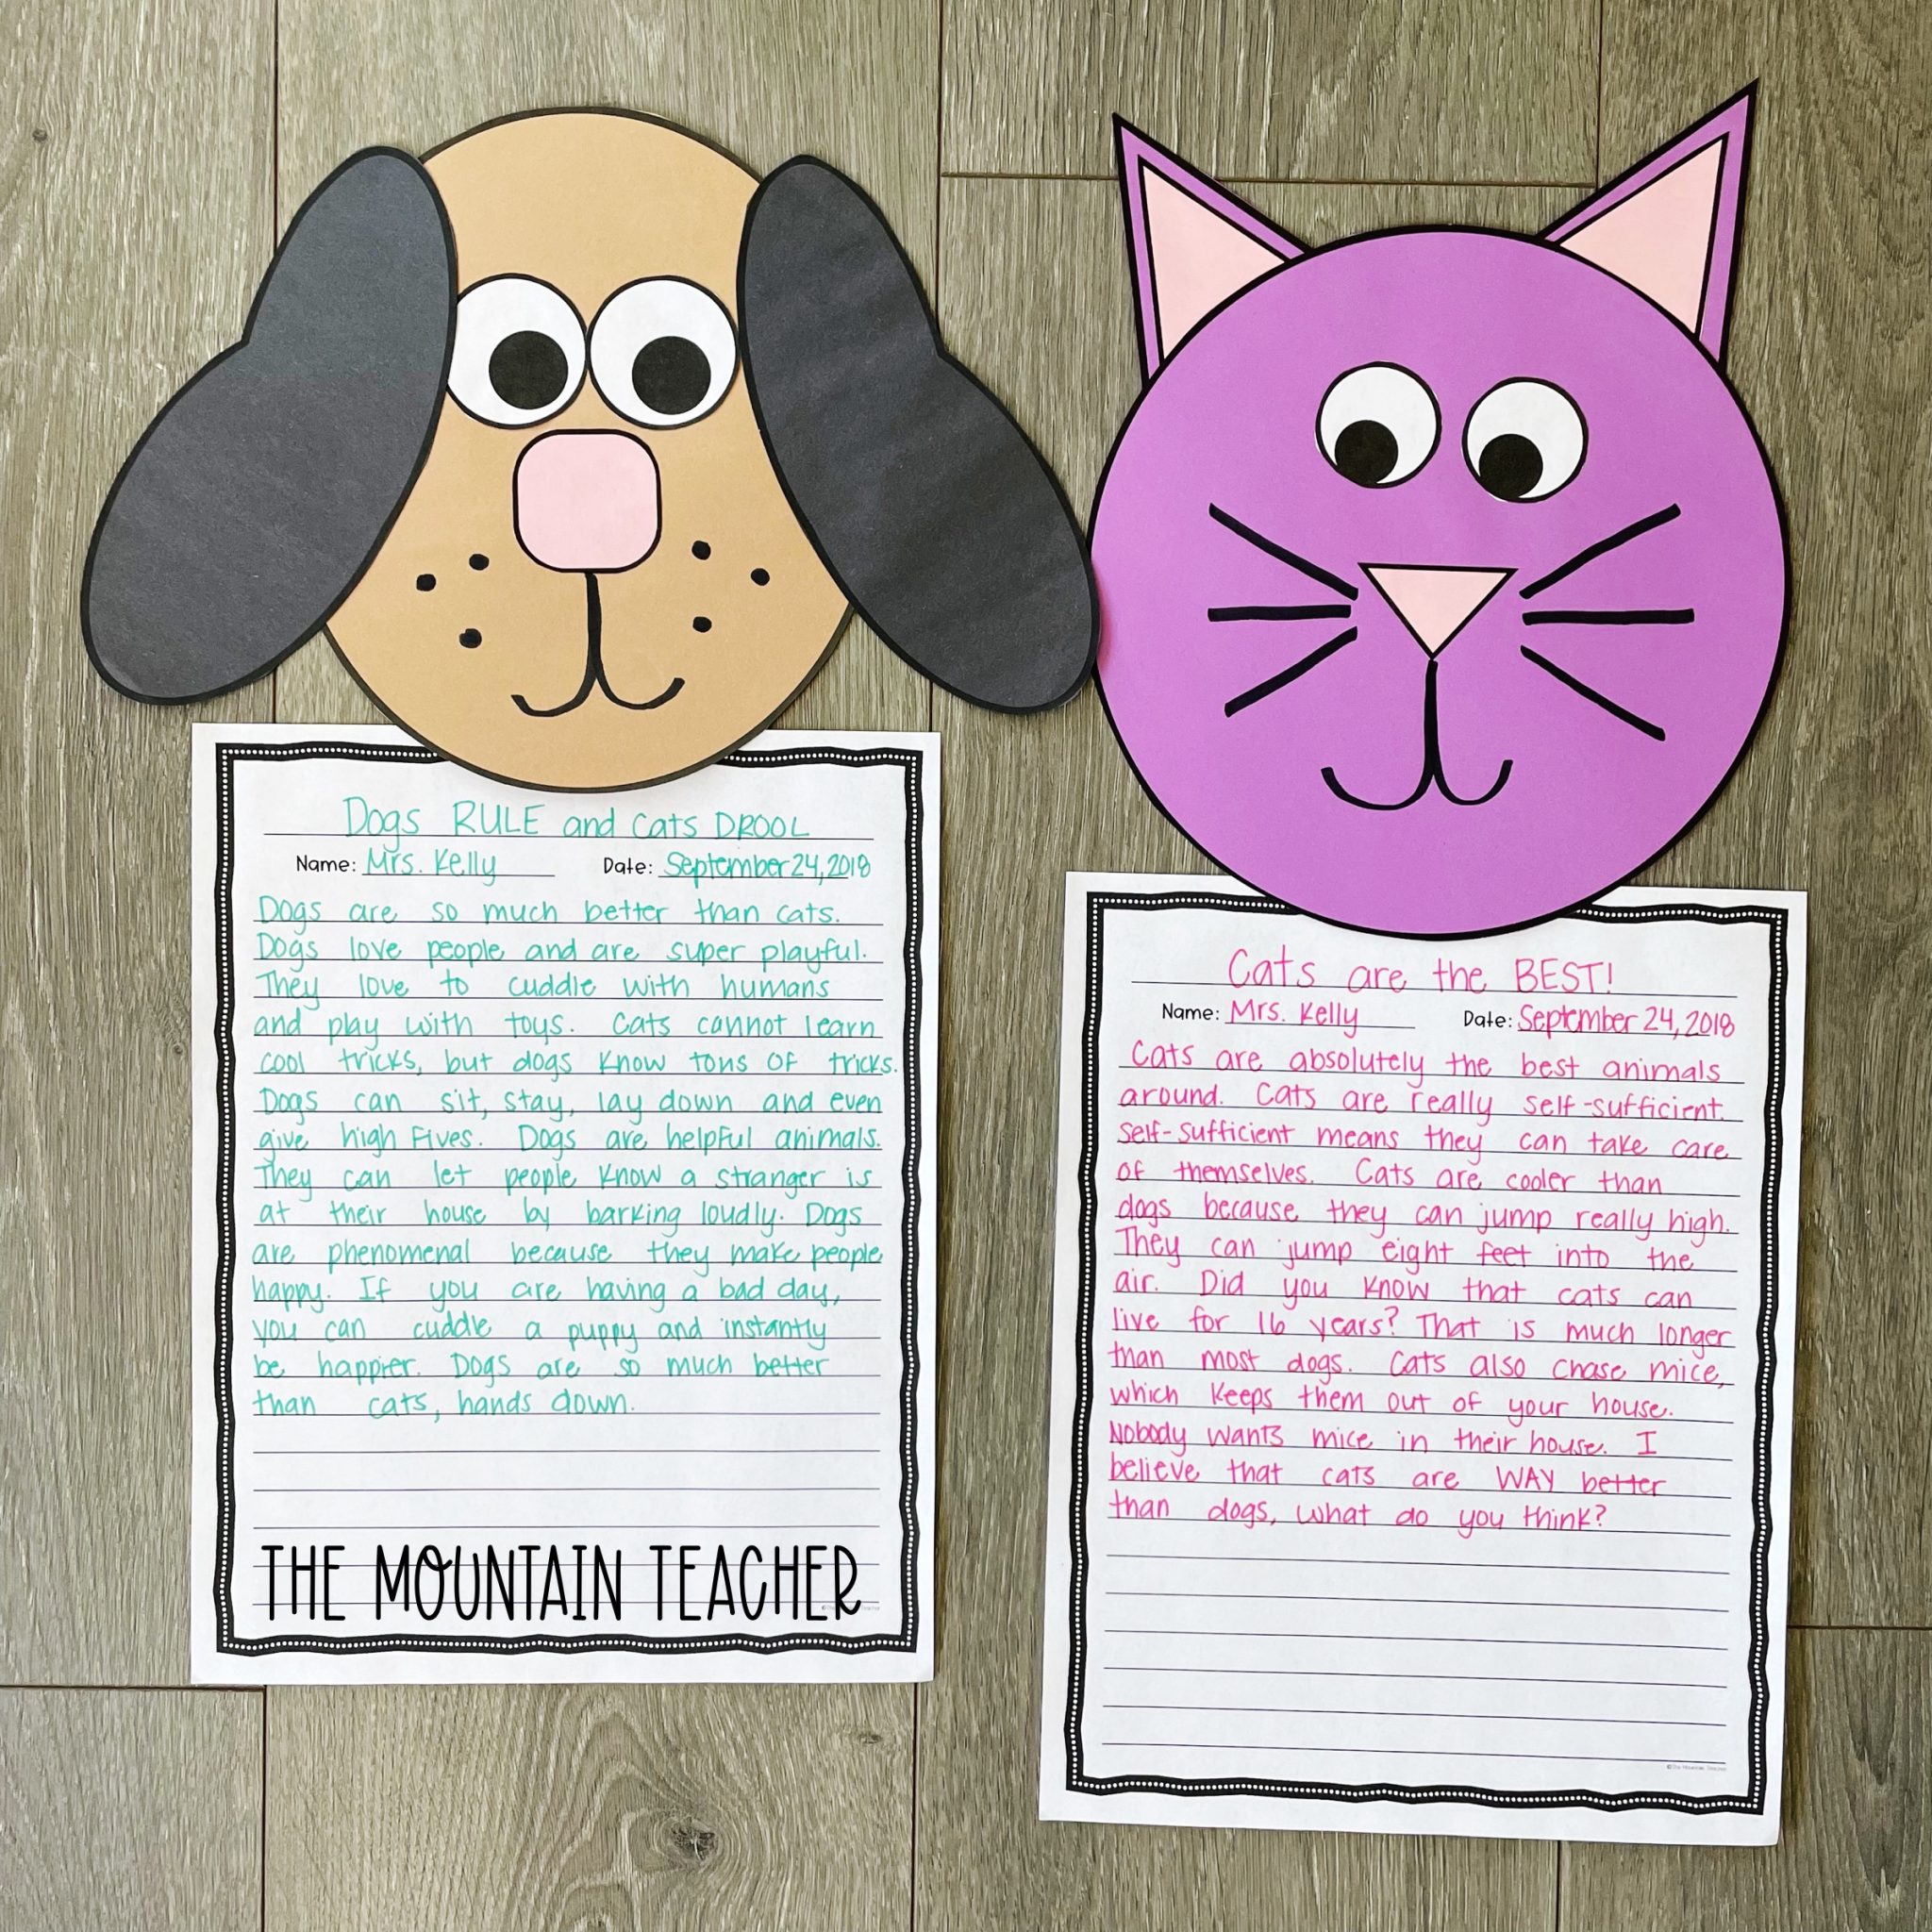 Dogs RULE and Cats DROOL
Name: Mrs. Kelly Date: September 24, 2018
Dogs are so much better than cats.
Dogs love people and are super playful.
They love to cuddle with humans
and play with toys. Cats cannot learn
cool tricks, but dogs know tons of tricks.
Dogs can sit, stay, lay down and even
give high fives. Dogs are helpful animals.
They can let people know a stranger is
at their house by barking loudly. Dogs
are phenomenal because they make people
happy. If you are having a bad day,
you can cuddle a puppy and instantly
be happier. Dogs are so much better
than cats, hands down.
THE MOUNTAIN TEACHER
©The Mountain Teacher
Cats are the BEST!
Name: Mrs. Kelly Date: September 24, 2018
Cats are absolutely the best animals
around. Cats are really self-sufficient.
Self-sufficient means they can take care
of themselves. Cats are cooler than
dogs because they can jump really high.
They can jump eight feet into the
air. Did you know that cats can
live for 16 years? That is much longer
than most dogs. Cats also chase mice,
which keeps them out of your house.
Nobody wants mice in their house. I
believe that cats are WAY better
than dogs, what do you think?
©The Mountain Teacher